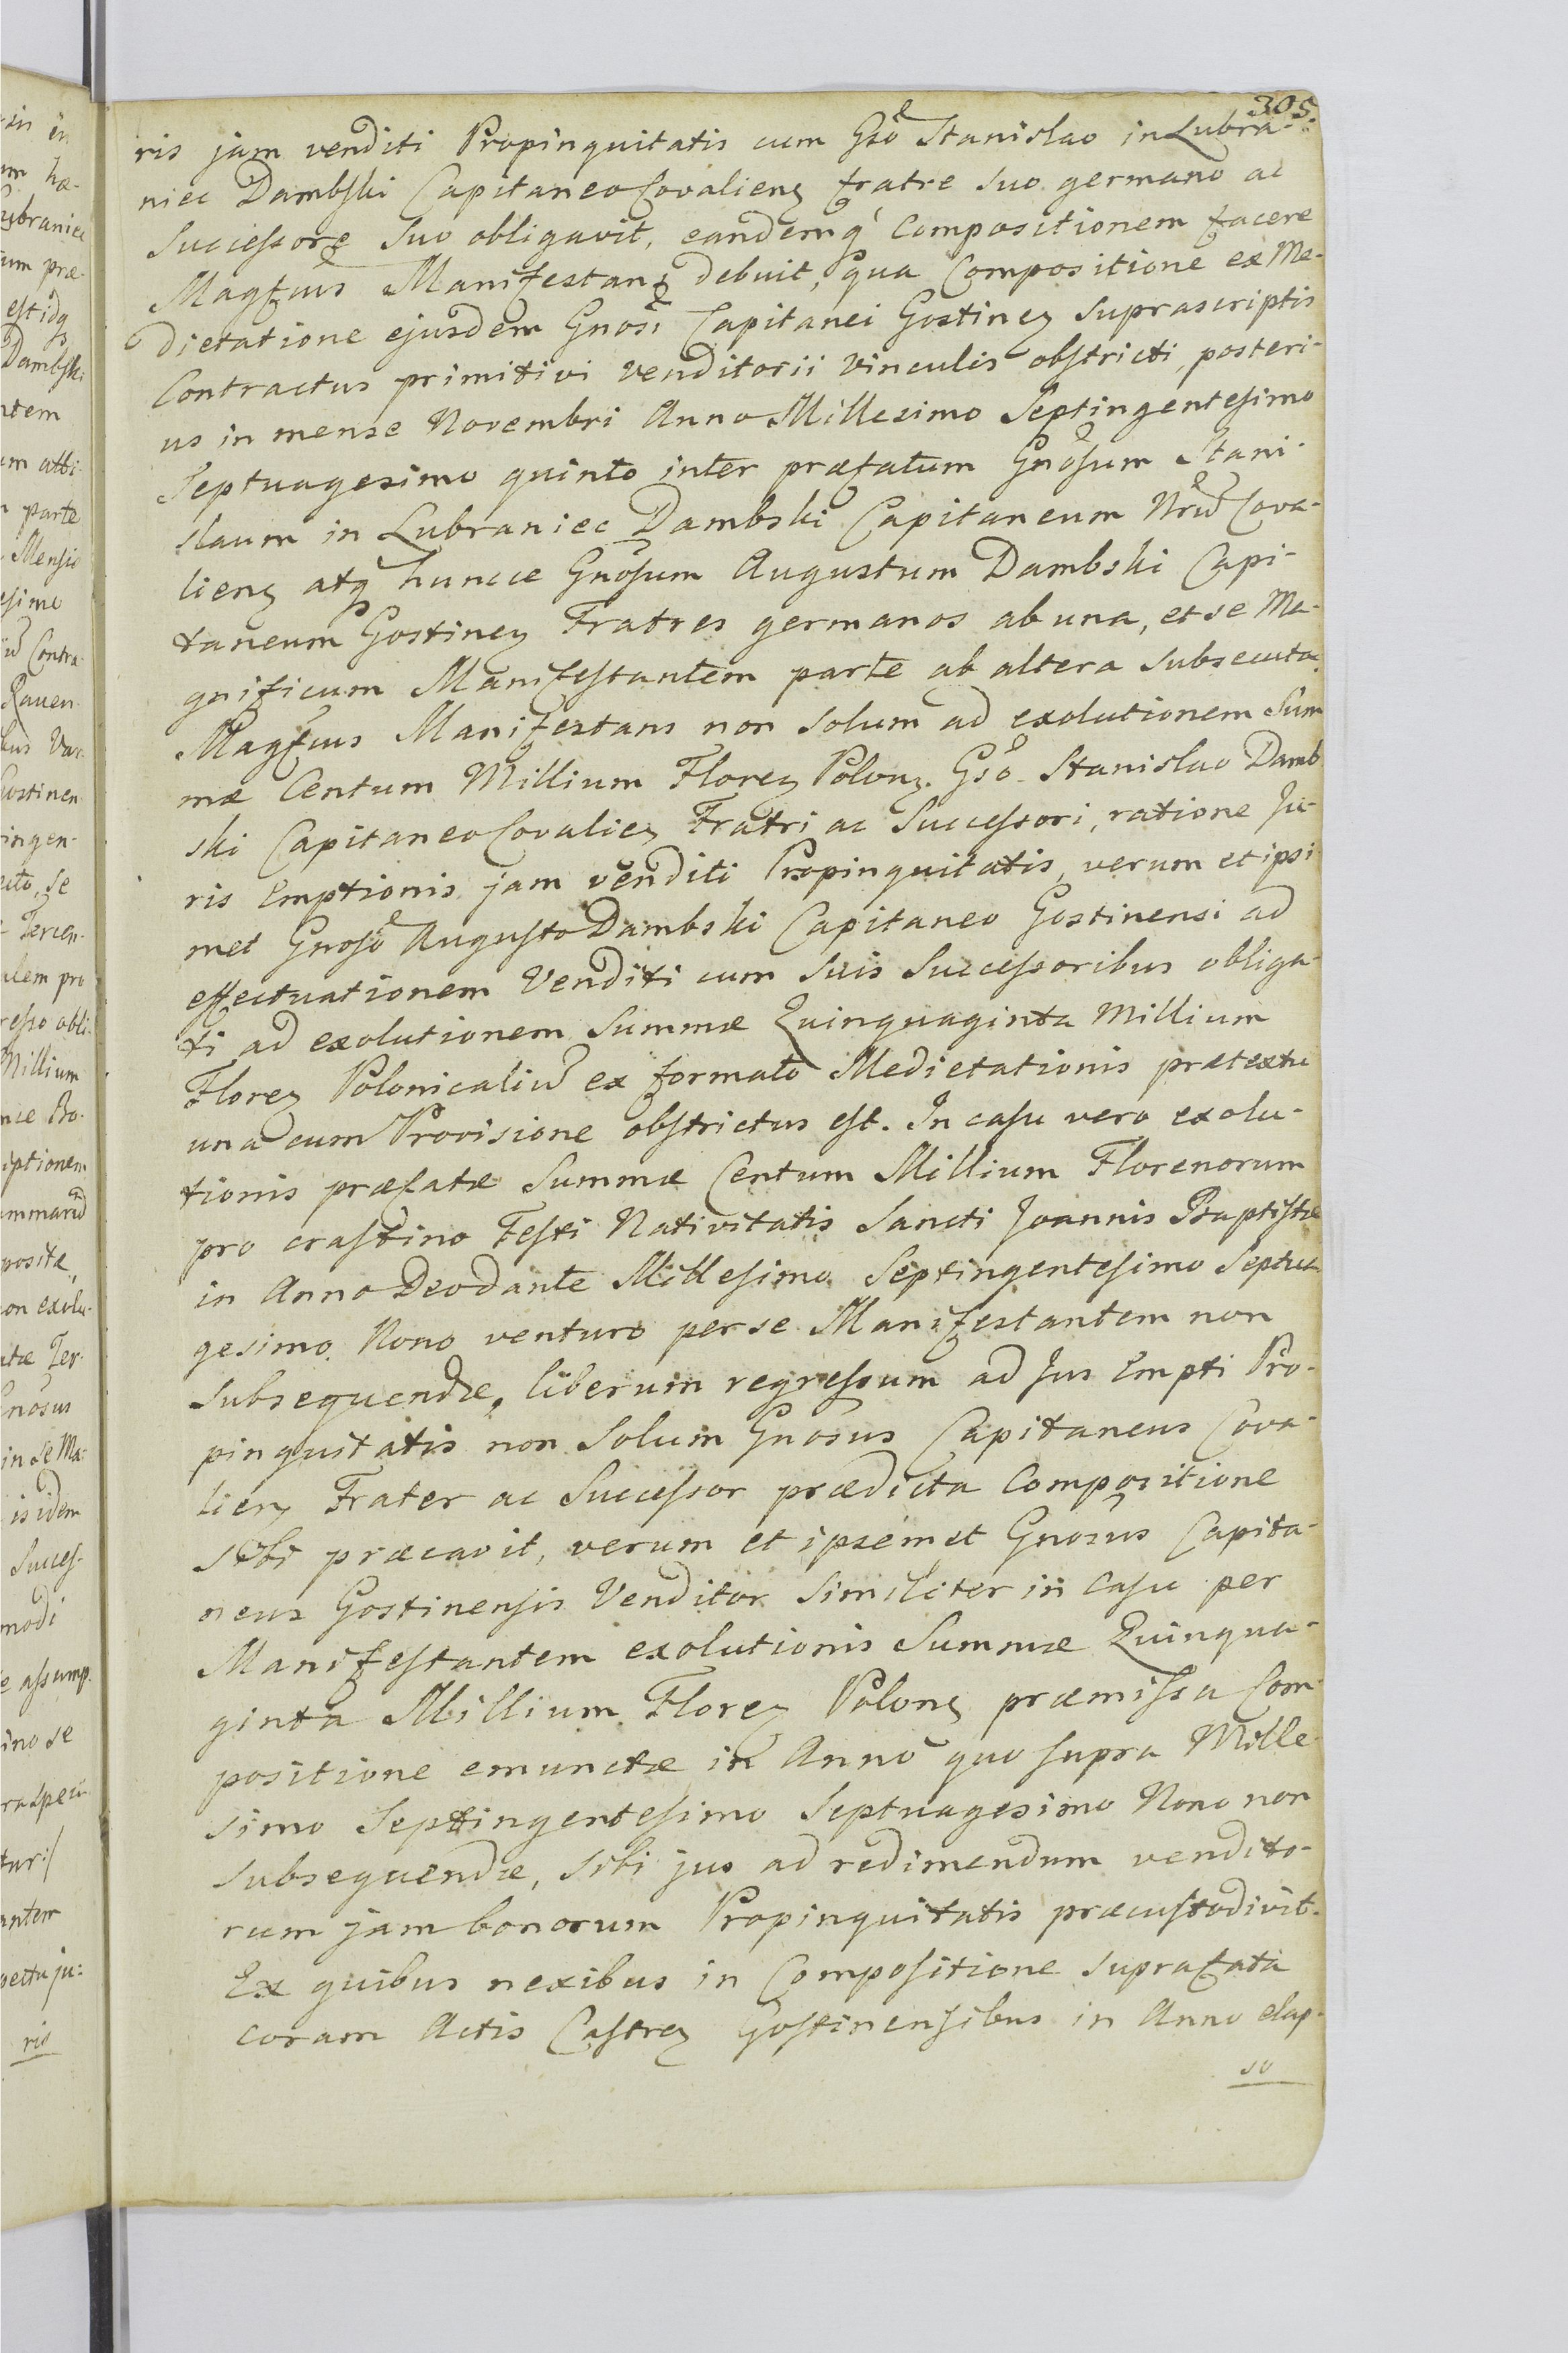 305
ris jam venditi Propinquitatis cum Gsõ Stanislao in Lubra-
niec Dambski Capitaneo Covalienʒ fratre suo germano ac
Successore suo obligavit, eandemq Compositionem facere
Magfcus Manifestans debuit, qua Compositione ex Me-
dietatione ejusdem Gnosi Capitanei Gostinenʒ suprascriptis
Contractus primitivi venditorii vinculis obstricti, posteri-
us in mense Novembri Anno Millesimo Septingentesimo
Septuagesimo quinto inter præfatum Gnosum Stani-
slaum in Lubraniec Dambski Capitaneum Nrũ Cova-
lienʒ atq huncce Gnosum Augustum Dambski Capi-
taneum Gostinenʒ Fratres germanos ab una, et se Ma-
gnificum Manifestantem parte ab altera subsecuta
Magfcus Manifestans non solum ad exolutionem Sum
mæ Centum Millium Florenʒ Polonʒ. Gsõ Stanislao Damb
ski Capitaneo Covalienʒ Fratri ac Successori, ratione Ju-
ris Emptionis jam venditi Propinquitatis, verum et ipsi
met Gnosõ Augusto Dambski Capitaneo Gostinensi ad
effectuationem Venditi cum suis Successoribus obliga-
ti ad exolutionem Summæ Quinquaginta Millium
Florenʒ Polonicaliũ ex formato Medietationis prætextu
una cum Provisione obstrictus est. In casu vero exolu-
tionis præfatæ Summæ Centum Millium Florenorum
pro crastino Festi Nativitatis Sancti Joannis Baptistæ
in Anno Deodante Millesimo Septingentesimo Septua
gesimo Nono venturo per se Manifestantem non
subsequendæ, liberum regressum ad Jus Empti Pro-
pinquitatis non solum Gnosus Capitaneus Cova-
lienʒ Frater ac Successor prædicta Compositione
sibi præcavit, verum et ipsemet Gnosus Capita-
neus Gostinensis Venditor similiter in casu per
Manifestantem exolutionis Summæ Quinqua-
ginta Millium Florenʒ Polonʒ præmissa Com-
positione emunctæ in Anno quo supra Mille-
simo Septingentesimo Septuagesimo Nono non
subsequendæ, sibi jus ad redimendum vendito-
rum jam bonorum Propinquitatis præcustodivit.
Ex quibus nexibus in Compositione suprafata
coram Actis Castrenʒ Gostinensibus in Anno elap-
so